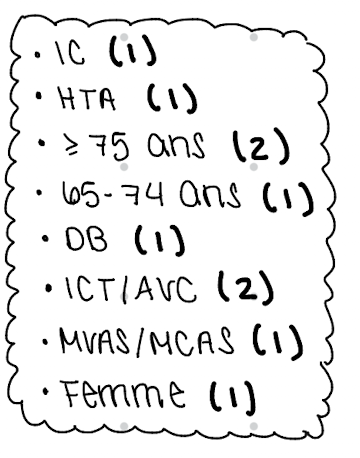 • IC (1)
• HTA (1)
• ≥ 75 ans (2)
• 65-74 ans (1)
• DB (1)
• ICT/AVC (2)
• MVAS/MCAS (1)
• Femme (1)